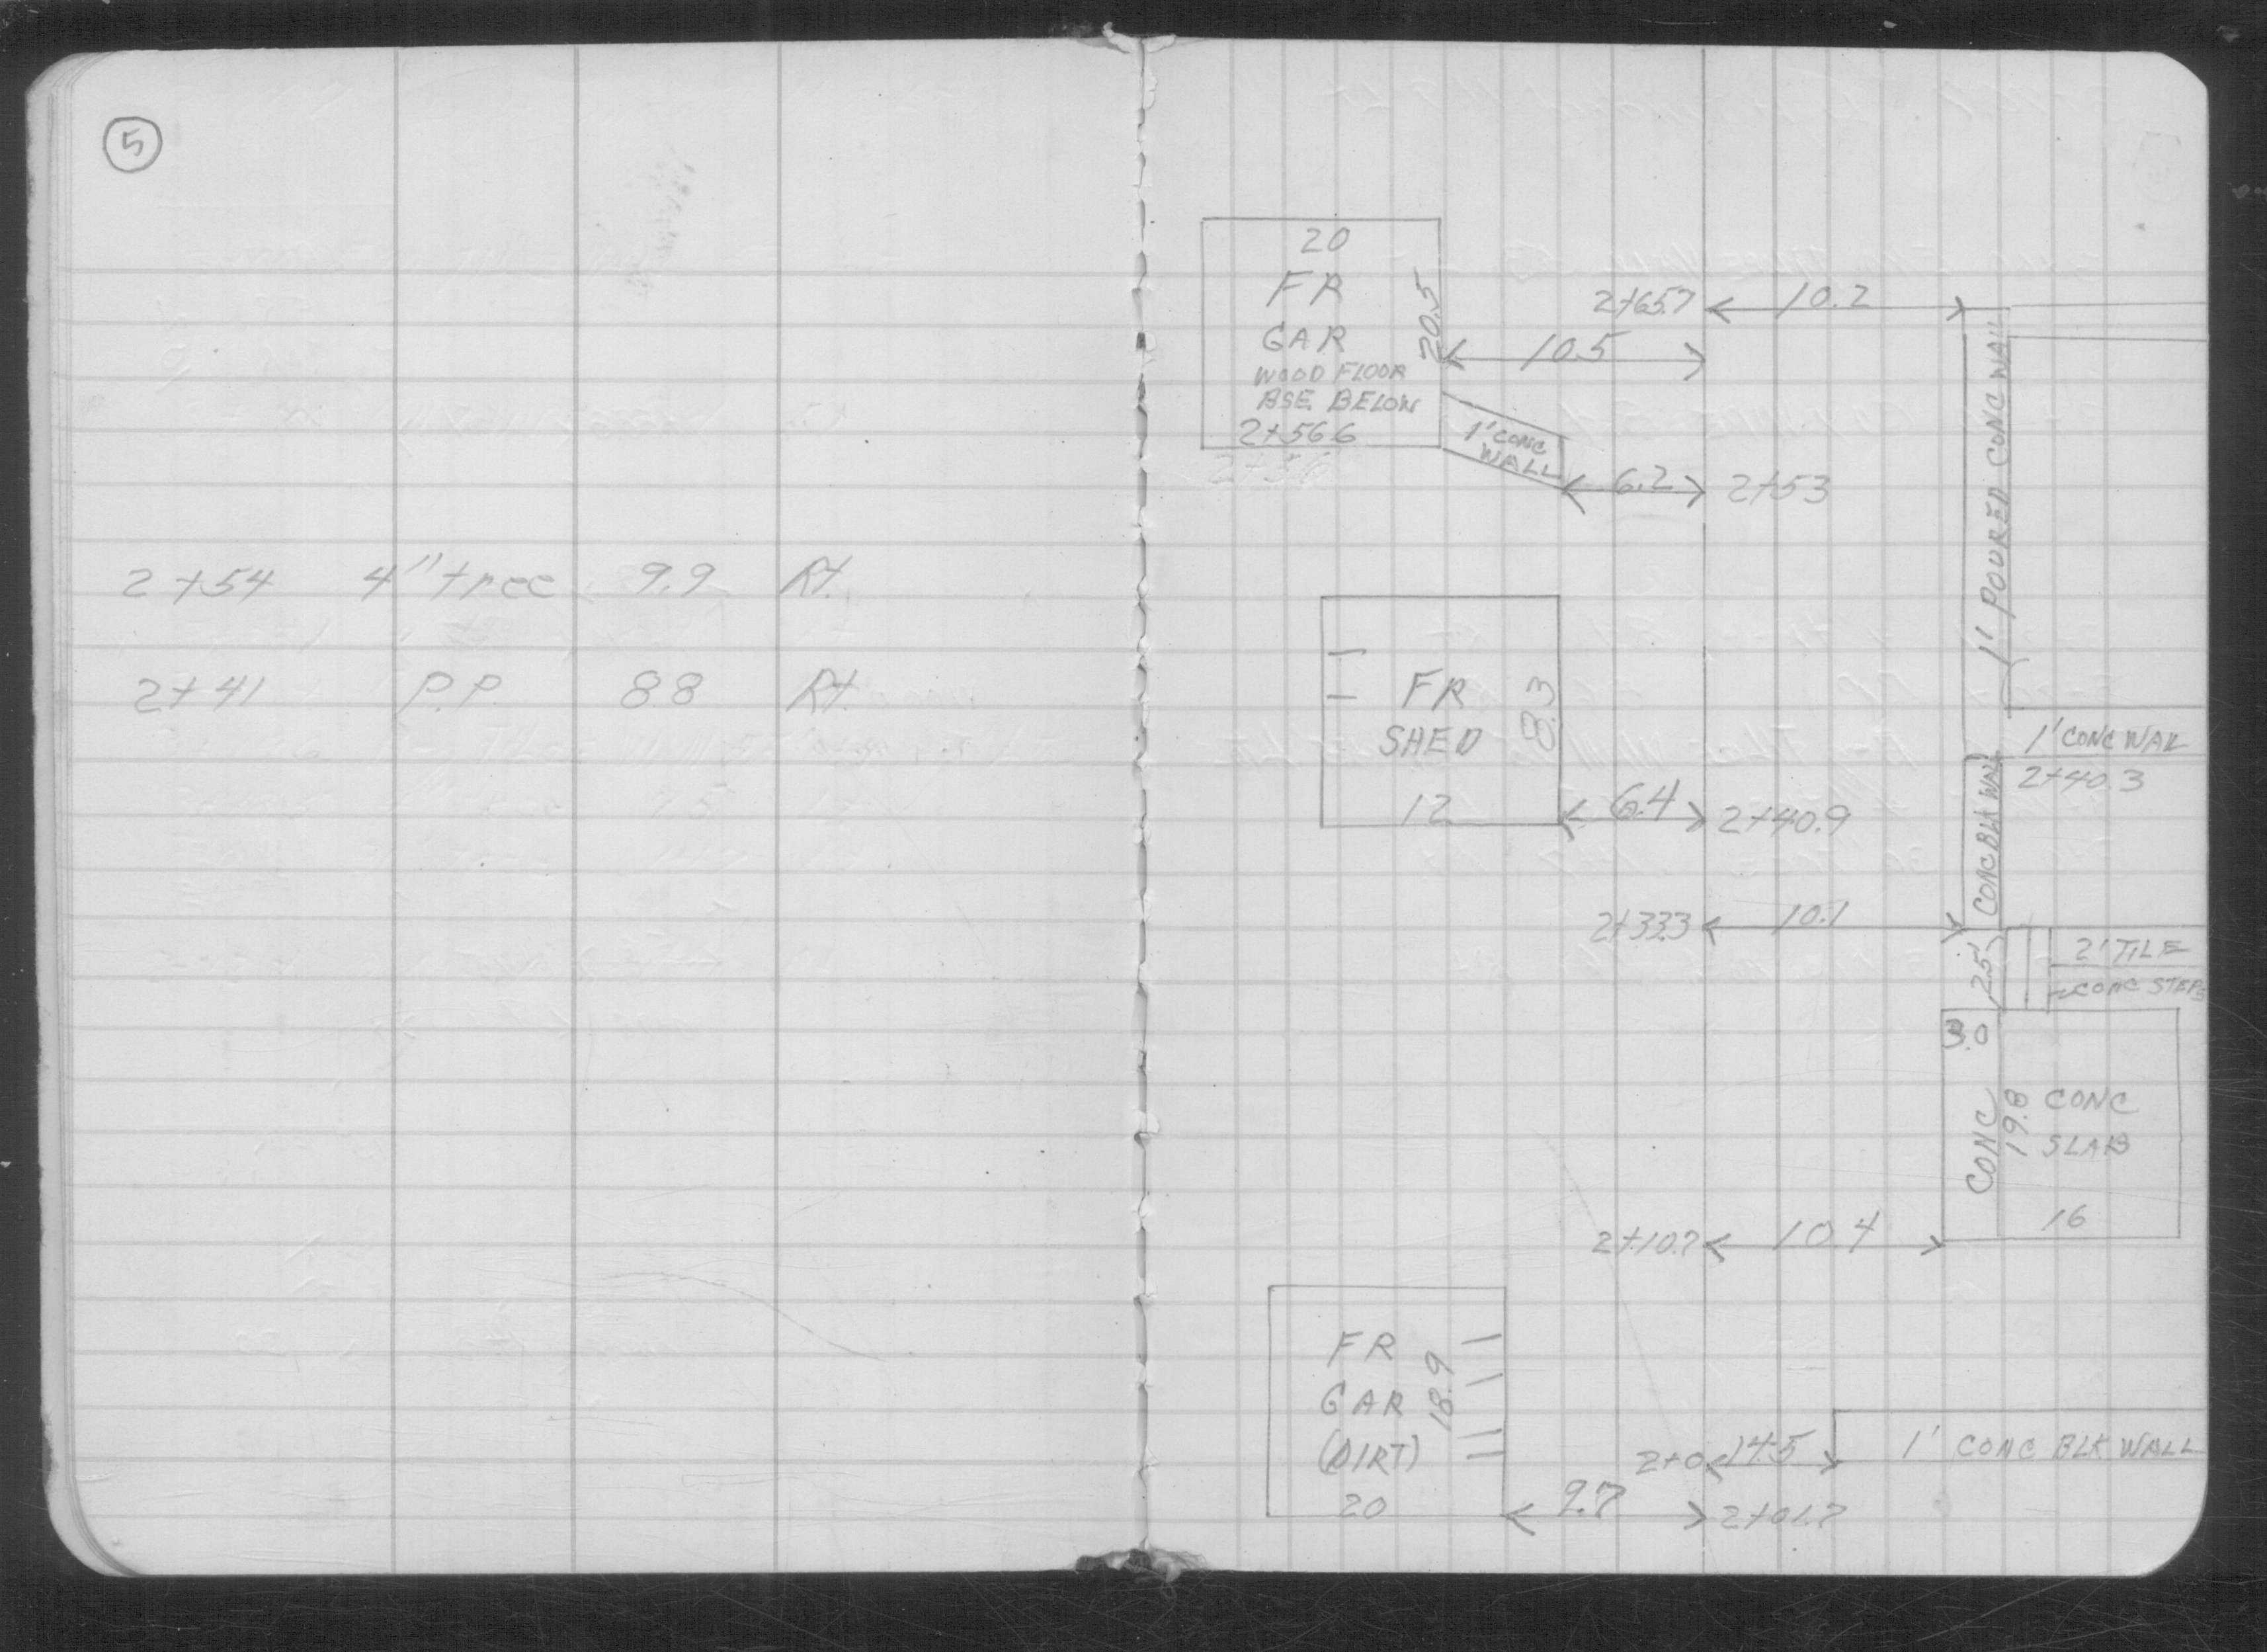 5
2+54 4" tree 9.9 Rt.
2+41 P.P. 8.8 Rt.
20
FR
GAR
WOOD FLOOR
BSE. BELOW
2+56.6
20.5
2+65.7 10.2
10.5
1' CONC
WALL
6.2 2+53
1' POURED CONC WALL
FR
SHED
8.3
12
6.4 2+40.9
1' CONC WALL
2+40.3
CONC BLK WALL
2+33.3 10.1
2.5
2' TILE
CONC STEPS
3.0
CONC
19.8
CONC
SLAB
16
2+10.7 10.4
FR
GAR
(DIRT)
18.9
20
2+0 14.5
1' CONC BLK WALL
9.7 2+01.7